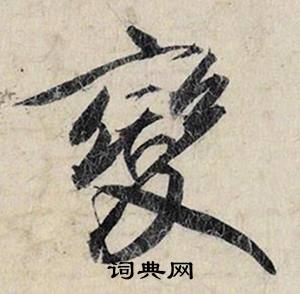 變
词典网